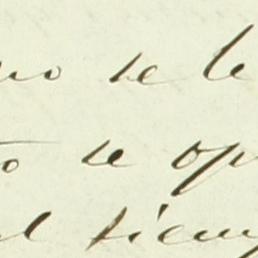 no se le
to se op
el siem